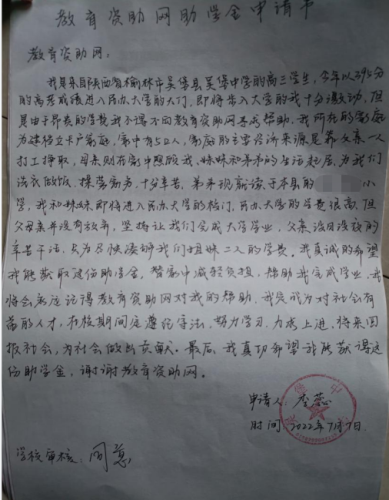 教育资助网助学金申请书
教育资助网:
我是来自陕西省榆林市吴堡县吴堡中学的高三学生,今年以396分
的高考成绩进入民办大学的大门,即将步入大学的我十分激动,但
是由于昂贵的学费我不得不向教育资助网寻求帮助,我所在的家庭
为建档立卡户家庭,家中有五口人,家庭的主要经济来源是靠父亲一人
打工挣取,母亲则在家中照顾我、妹妹和弟弟的生活起居,为我们
洗衣做饭,操劳家务,十分辛苦,弟弟现就读于本县的 小
学,我和妹妹即将进入民办大学的校门,民办大学的学费很高,但
父母亲并没有放弃,坚持让我们完成大学学业,父亲没日没夜的
辛苦干活,只为尽快凑够我们姐妹二人的学费。我真诚的希望
我能获取这份助学金,替家中减轻负担,帮助我完成学业,我
将会永远记得教育资助网对我的帮助,我会成为对社会有
用的人才,在校期间会遵纪守法,努力学习,力求上进,将来回
报社会,为社会做出贡献。最后,我真切希望我能获得这
份助学金,谢谢教育资助网。
申请人 蕊
时间:2022年7月7日
学校审核: 同意